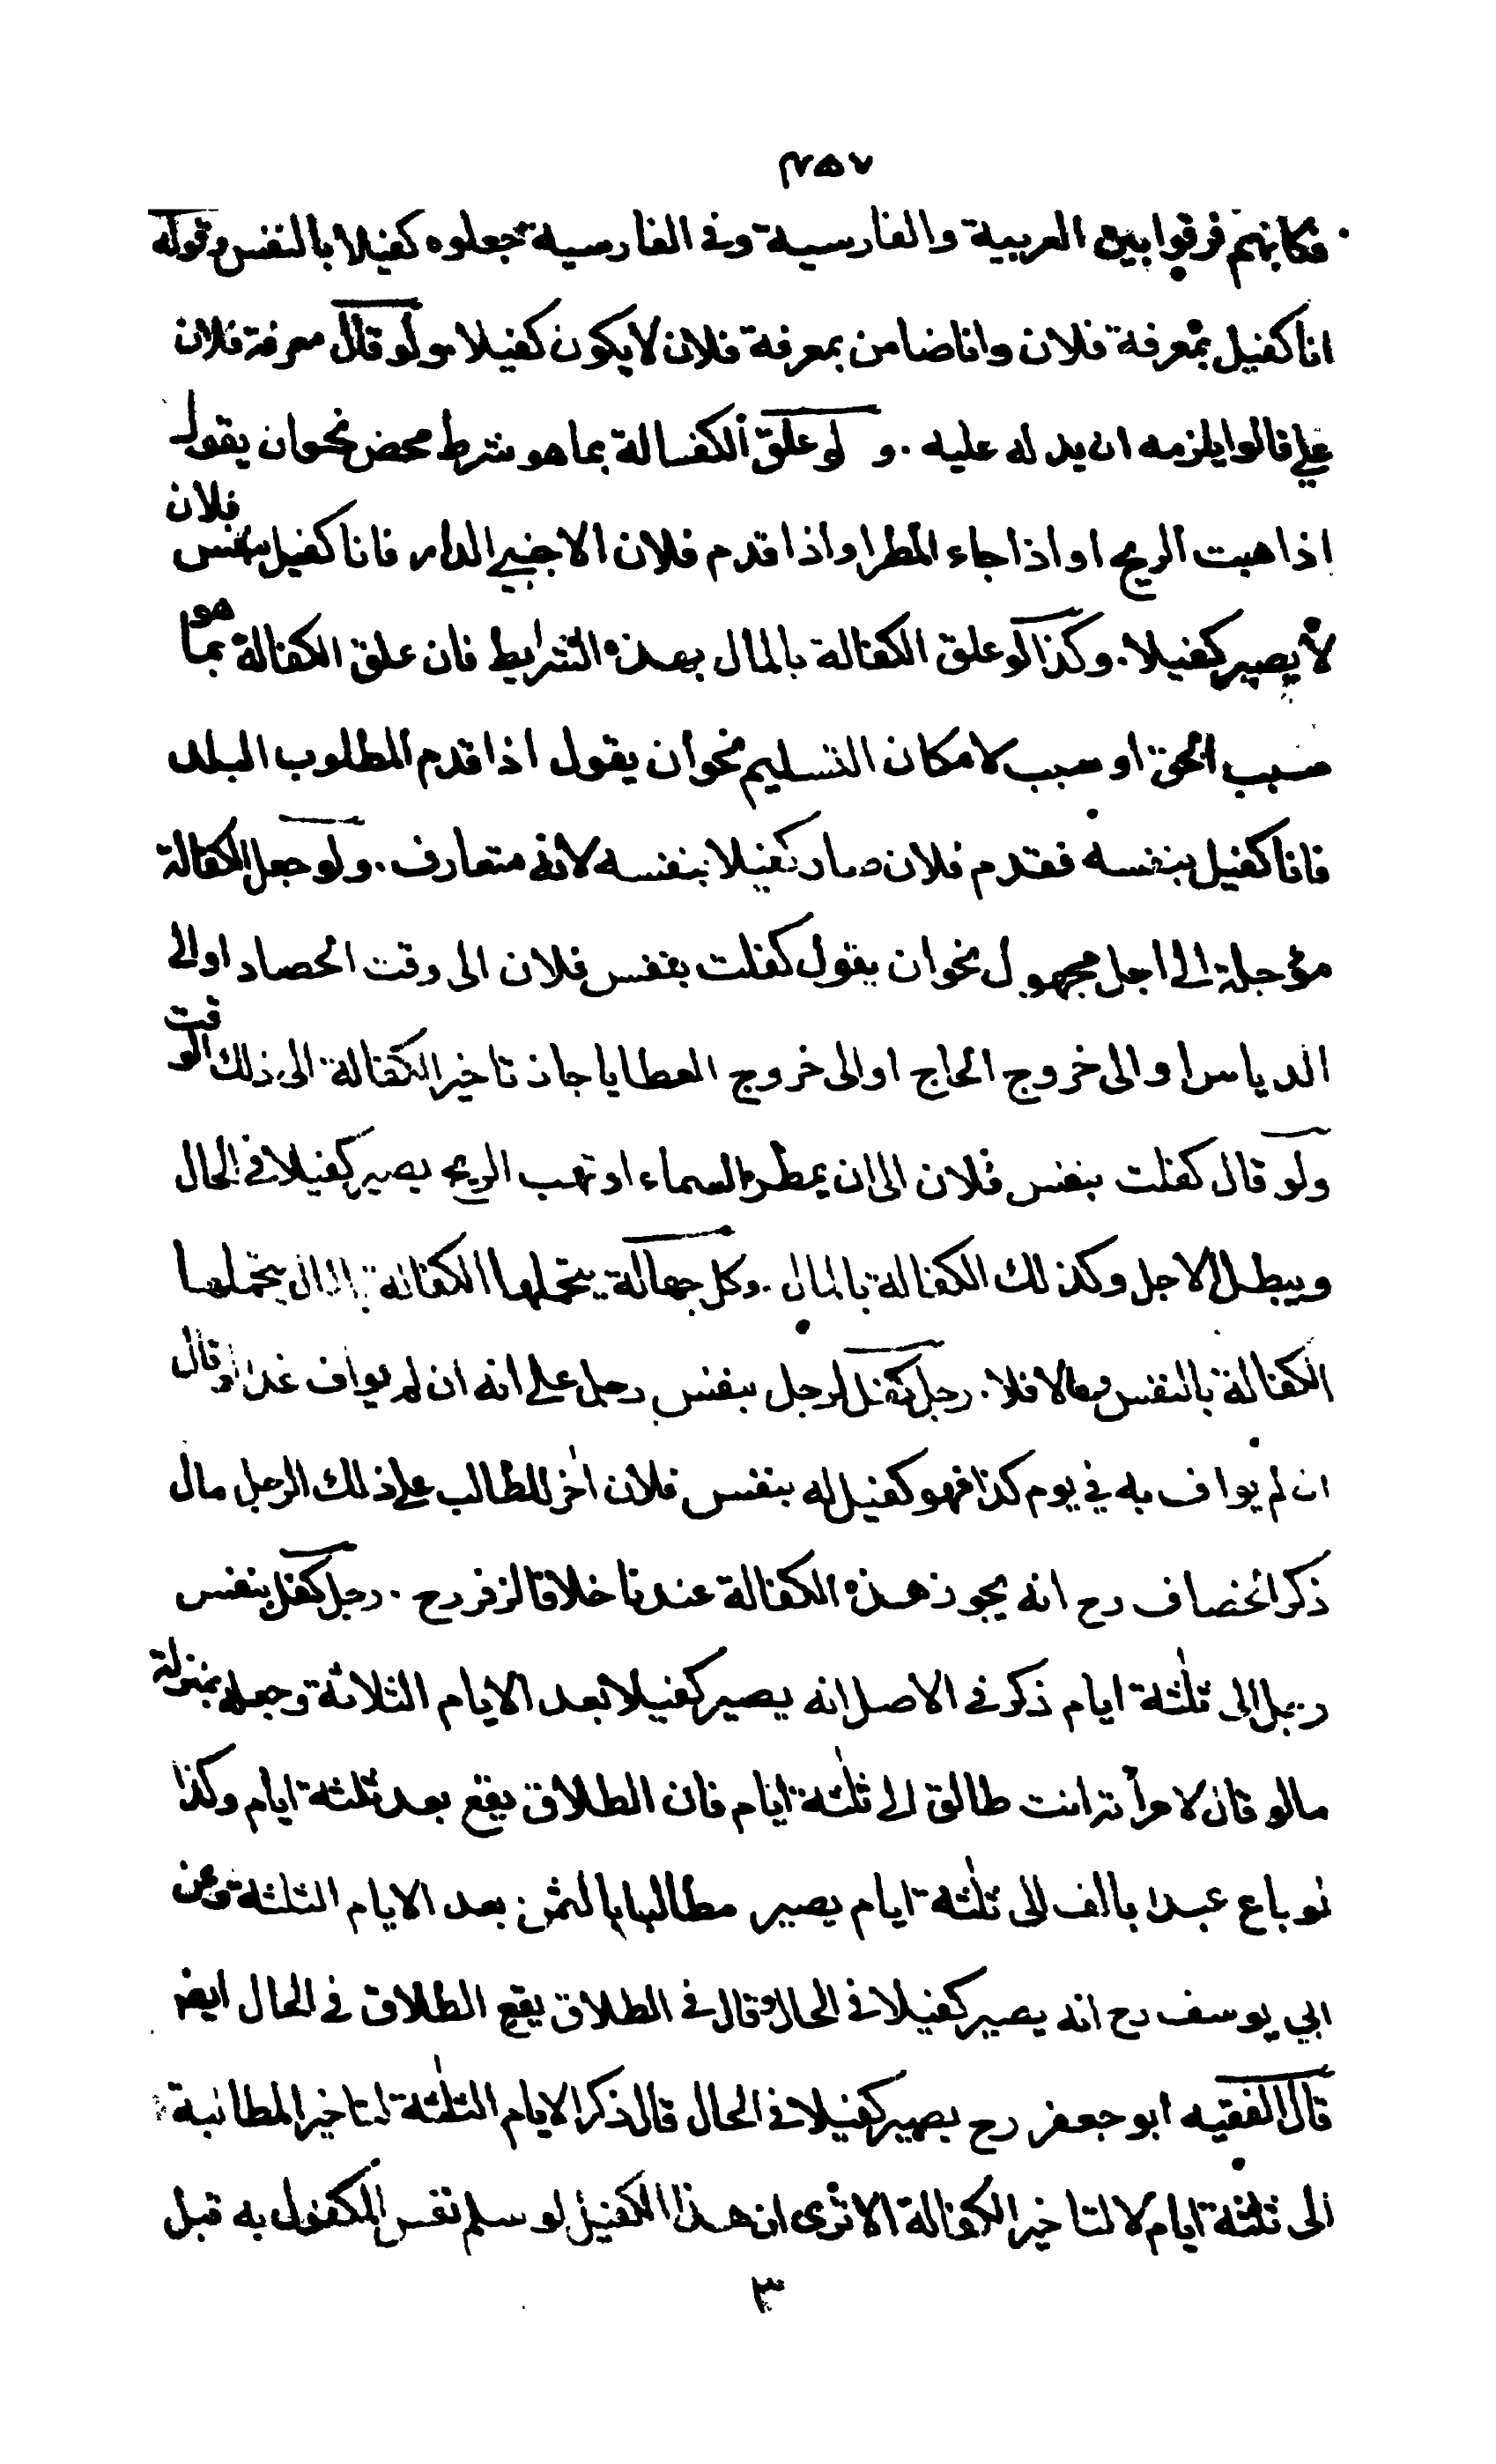 ٧٥٧
فكانهم فرقوا بين العربية والفارسية وفى الفارسية جعلوه كفيلا بالنفس وقوله
انا كفيل بمعرفة فلان وانا ضامن بمعرفة فلان لا يكون كفيلا ولو قال معرفة فلان
علي قالوا يلزمه ان يدله عليه . و لو علق الكفالة بما هو شرط محض نحو ان يقول
اذا هبت الريح او اذا جاء المطر او اذا قدم فلان الاجنبي الدار فانا كفيل بنفس فلان
لا يصير كفيلا . وكذا لو علق الكفالة بالمال بهذه الشرايط فان علق الكفالة بما هو
سبب الحق او سبب لامكان التسليم نحو ان يقول اذا قدم المطلوب البلد
فانا كفيل بنفسه فقدم فلان صار كفيلا بنفسه لانه متعارف . ولو جعل الكفالة
مؤجلة الى اجل مجهول نحو ان يقول كفلت بنفس فلان الى وقت الحصاد او الى
الدياس او الى خروج الحاج او الى خروج العطايا جاز تاخير الكفالة الى ذلك الوقت
ولو قال كفلت بنفس فلان الى ان يمطر السماء او تهب الريح يصير كفيلا فى الحال
ويبطل الاجل وكذلك الكفالة بالمال . وكل جهالة يتحملها الكفالة بالمال يتحملها
الكفالة بالنفس ومالا فلا . رجل كفل لرجل بنفس رجل على انه ان لم يواف غدا او قال
ان لم يواف به في يوم كذا فهو كفيل له بنفس فلان اٰخر للطالب على ذلك الرجل مال
ذكر الخصاف رح انه يجوز هذه الكفالة عندنا خلافا لزفر رح . رجل كفل بنفس
رجل الى ثلٰثة ايام ذكر فى الاصل انه يصير كفيلا بعد الايام الثلاثة وجعله بمنزلة
مالو قال لامرأته انت طالق الى ثلٰثة ايام فان الطلاق يقع بعد ثلثة ايام وكذا
لو باع عبدا بالف الى ثلٰثة ايام يصير مطالبا بالثمن بعد الايام الثلثة وعن
ابي يوسف رح انه يصير كفيلا فى الحال وقال فى الطلاق يقع الطلاق فى الحال ايضا
قال الفقيه ابو جعفر رح يصير كفيلا فى الحال قال ذكر الايام الثلٰثة لتاخير المطالبة
الى ثلثة ايام لا لتاخير الكفالة الا ترى ان هذا الكفيل لو سلم نفس المكفول به قبل
٣